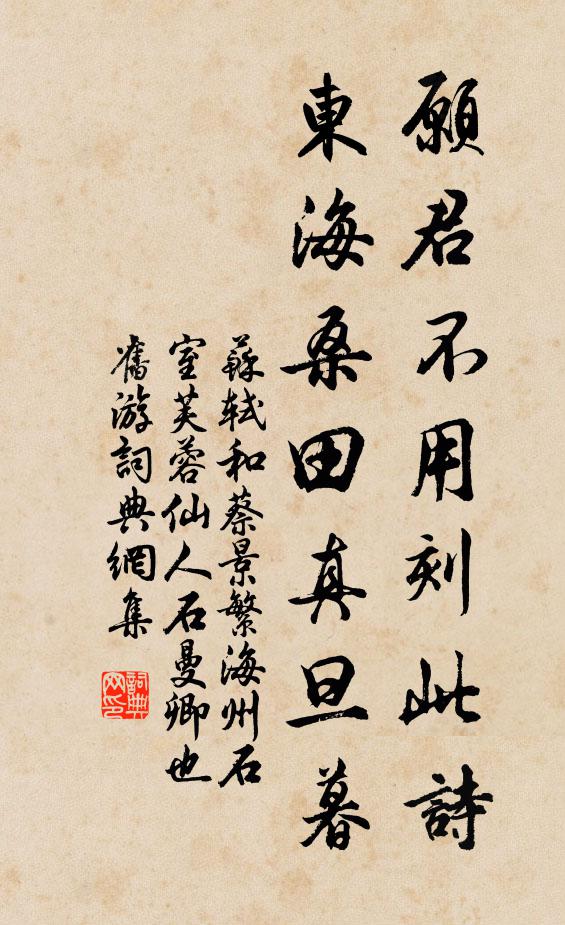 願君不用刻此詩
東海桑田真旦暮
蘇軾和蔡景繁海州石
室芙蓉仙人石曼卿也
舊游詞典網集
詞典
网印